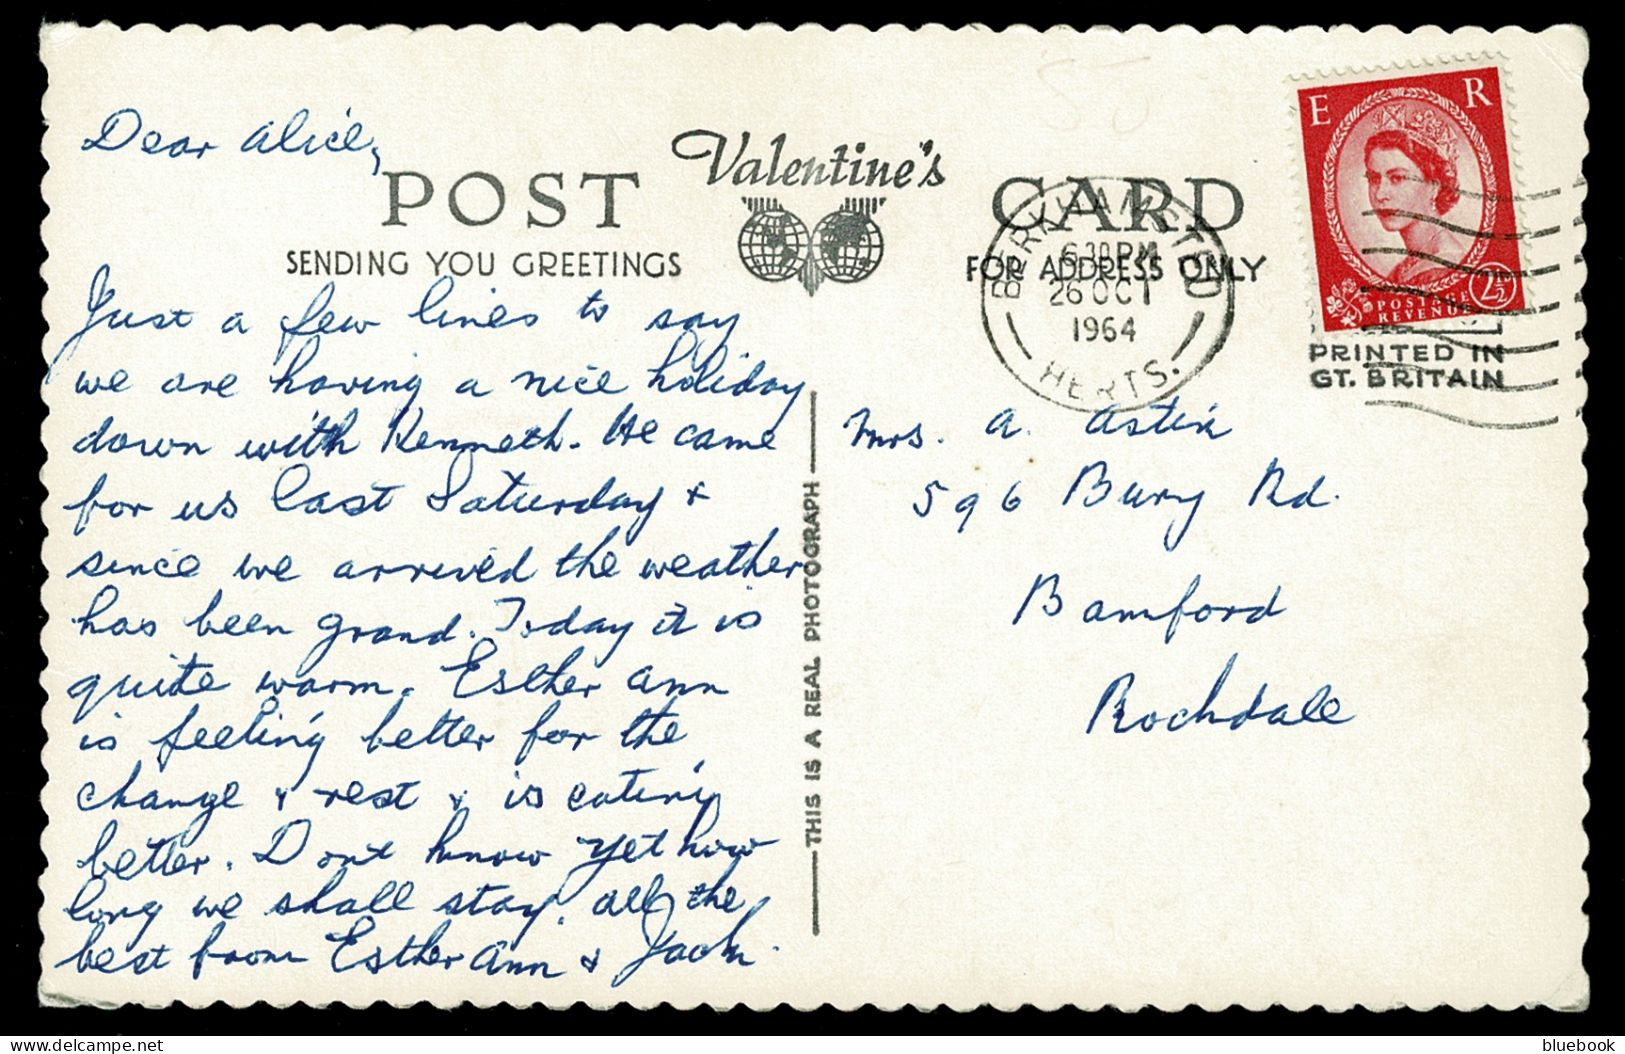 Dear Alice,
POST
Valentine's
CARD
SENDING YOU GREETINGS
FOR ADDRESS ONLY
E R
POSTAGE
REVENUE
2½
BERKHAMSTED
6.30 PM
26 OCT
1964
HERTS.
PRINTED IN
GT. BRITAIN
Just a few lines to say
we are having a nice holiday
down with Kenneth. He came
for us last Saturday &
since we arrived the weather
has been grand. Today it is
quite warm. Esther Ann
is feeling better for the
change & rest & is eating
better. Dont know yet how
long we shall stay. All the
best from Esther Ann & Jack.
THIS IS A REAL PHOTOGRAPH
Mrs. A. Astin
596 Bury Rd.
Bamford
Rochdale
bluebook